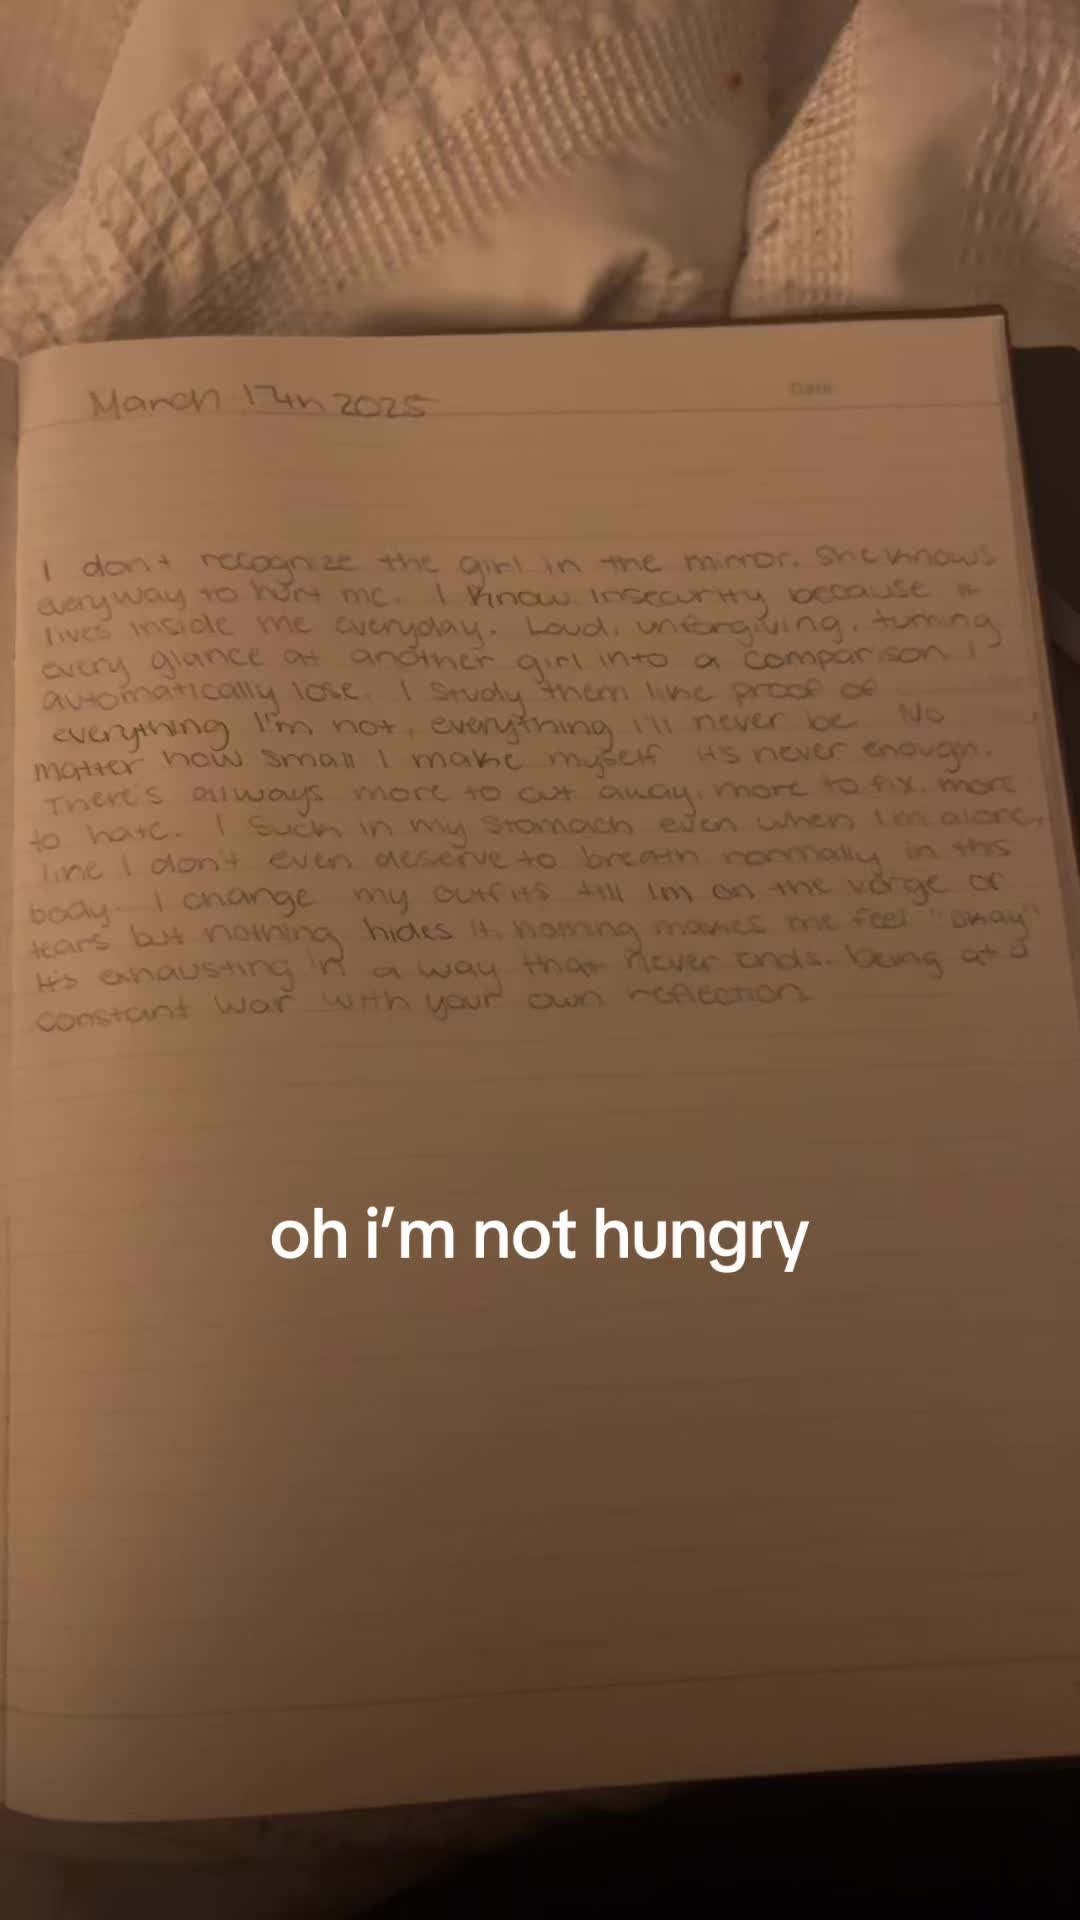 March 17th 2025
Date
I don't recognize the girl in the mirror. She knows
everyway to hurt me. I know insecurity because it
lives inside me everyday. Loud, unforgiving, turning
every glance at another girl into a comparison I
automatically lose. I study them like proof of
everything I'm not, everything I'll never be. No
matter how small I make myself it's never enough.
There's allways more to cut away, more to fix, more
to hate. I suck in my stomach even when I'm alone,
like I don't even deserve to breath normally in this
body. I change my outfits till Im on the verge of
tears but nothing hides it, nothing makes me feel "okay"
It's exhausting in a way that never ends. being at a
constant war with your own reflection.
oh i'm not hungry